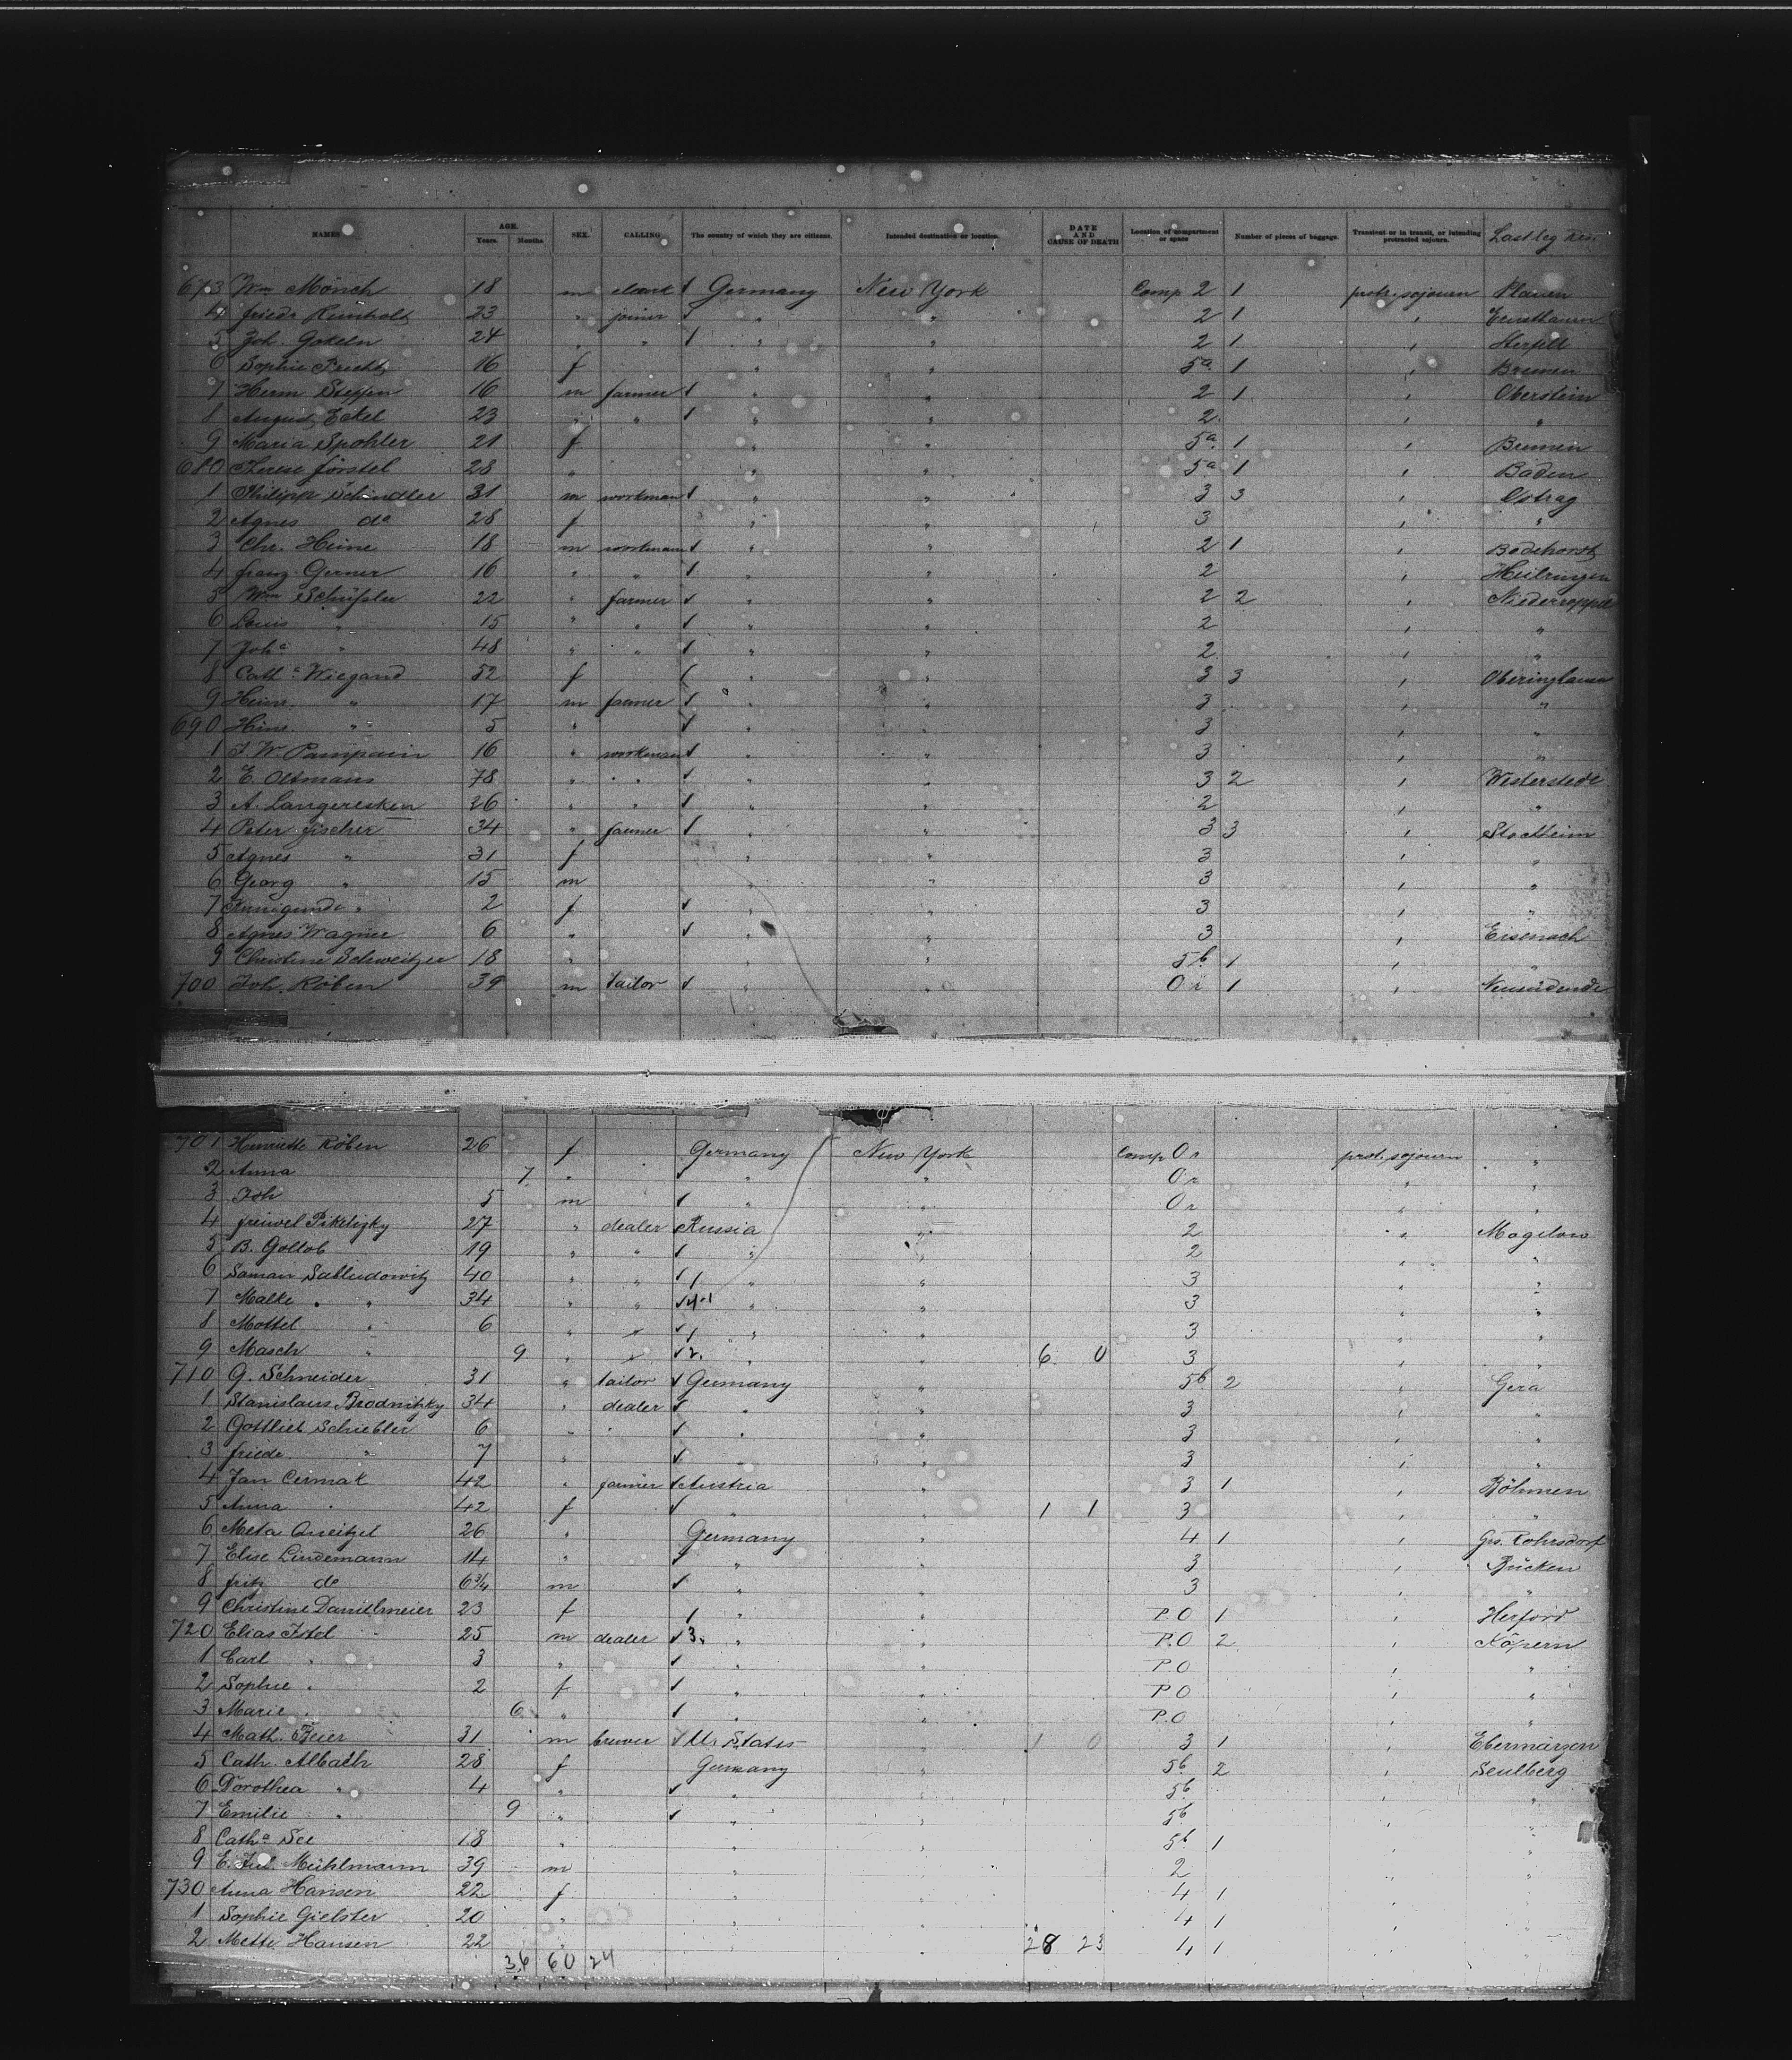 NAMES AGE. Years. Months. SEX. CALLING. The country of which they are citizens. Intended destination or location. DATE AND CAUSE OF DEATH Location of compartment or space Number of pieces of baggage. Transient or in transit, or intending protracted sojourn. Last leg. res.
673 Wm Mönch 18 m clerk Germany New York Comp 2 1 protr. sojourn Plauen
4 Friedr 23 " joiner " " 2 1 "
5 Joh. Gokeln 24 " " " " 2 1 "
6 Sophie 16 f " " 5a 1 " Bremen
7 Herm Steffen 16 m farmer " " 2 1 " Oberstein
8 August Eckel 23 " " " " 2 " "
9 Maria Spohler 21 f " " 5a 1 " Bremen
680 Therese Förstel 28 " " " 5a 1 " Baden
1 Philipp Schindler 31 m workman " " 3 3 " Ostrag
2 Agnes do 28 f " " 3 " "
3 Chr. Heine 18 m workman " " 2 1 "
4 Franz Gerner 16 " " " " 2 "
5 Wm Schüssler 22 " farmer " " 2 2 "
6 Louis " 15 " " " " 2 " "
7 Joha " 48 " " " " 2 " "
8 Catha Wiegand 52 f " " 3 3 "
9 Heinr. " 17 m farmer " " 3 " "
690 " 5 " " " 3 " "
1 J. W. 16 " workman " " 3 " "
2 E. Oltmans 78 " " " " 3 2 " Westerstede
3 A. Langeresken 26 " " " " 2 " "
4 Peter Fischer 34 " farmer " " 3 3 " Stockheim
5 Agnes " 31 f " " 3 " "
6 Georg " 15 m " " 3 " "
7 Kunigunde " 2 f " " 3 " "
8 Agnes Wagner 6 " " " 3 " Eisenach
9 Christine Schweitzer 18 " " " 5b 1 " "
700 Joh. Röben 39 m tailor " " Or 1 " Neusüdende
701 Henriette Röben 26 f Germany New York Comp Or prot. sojourn "
2 Anna 7 " " " Or " "
3 Joh 5 m " " Or " "
4 27 " dealer Russia " 2 " Mogilow
5 B. Gollob 19 " " " " 2 " "
6 Saman 40 " " 1 " " 3 " "
7 Malke " 34 " " " " 3 " "
8 Mottel " 6 " " 1 " " 3 " "
9 Masch " 9 " " 2. " " 6 0 3 " "
710 G. Schneider 31 " tailor Germany " 5b 2 " Gera
1 Stanislaus Brodnitzky 34 " dealer " " 3 " "
2 Gottlieb Schiebler 6 " " " " 3 " "
3 friede " 7 " " " 3 " "
4 Jan Cermak 42 " farmer Austria " 3 1 " Böhmen
5 Anna " 42 f " " 1 1 3 " "
6 Meta Queitzel 26 " Germany " 4 1 " Grs. Rohrsdorf
7 Elise Lindemann 14 " " " 3 " Bücken
8 fritz do 6¾ m " " 3 " "
9 Christine Daniellmeier 23 f " " P.O 1 " Herford
720 Elias Istel 25 m dealer 3. " " P.O 2 " Köpern
1 Carl " 3 " " " P.O " "
2 Sophie " 2 f " " P.O " "
3 Marie " 6 " " " P.O " "
4 Math. Beier 31 m brewer U. States " 1 0 3 1 "
5 Cath. Albach 28 f Germany " 5b 2 " Seulberg
6 Dorothea " 4 " " " 5b " "
7 Emilie " 9 " " " 5b " "
8 Catha See 18 " " " 5b 1 " "
9 E. Jul. Mühlmann 39 m " " 2 " "
730 Anna Hansen 22 f " " 4 1 " "
1 Sophie Gielster 20 " " " 4 1 " "
2 Mette Hansen 22 " " " 28 23 4 1 " "
36 60 24